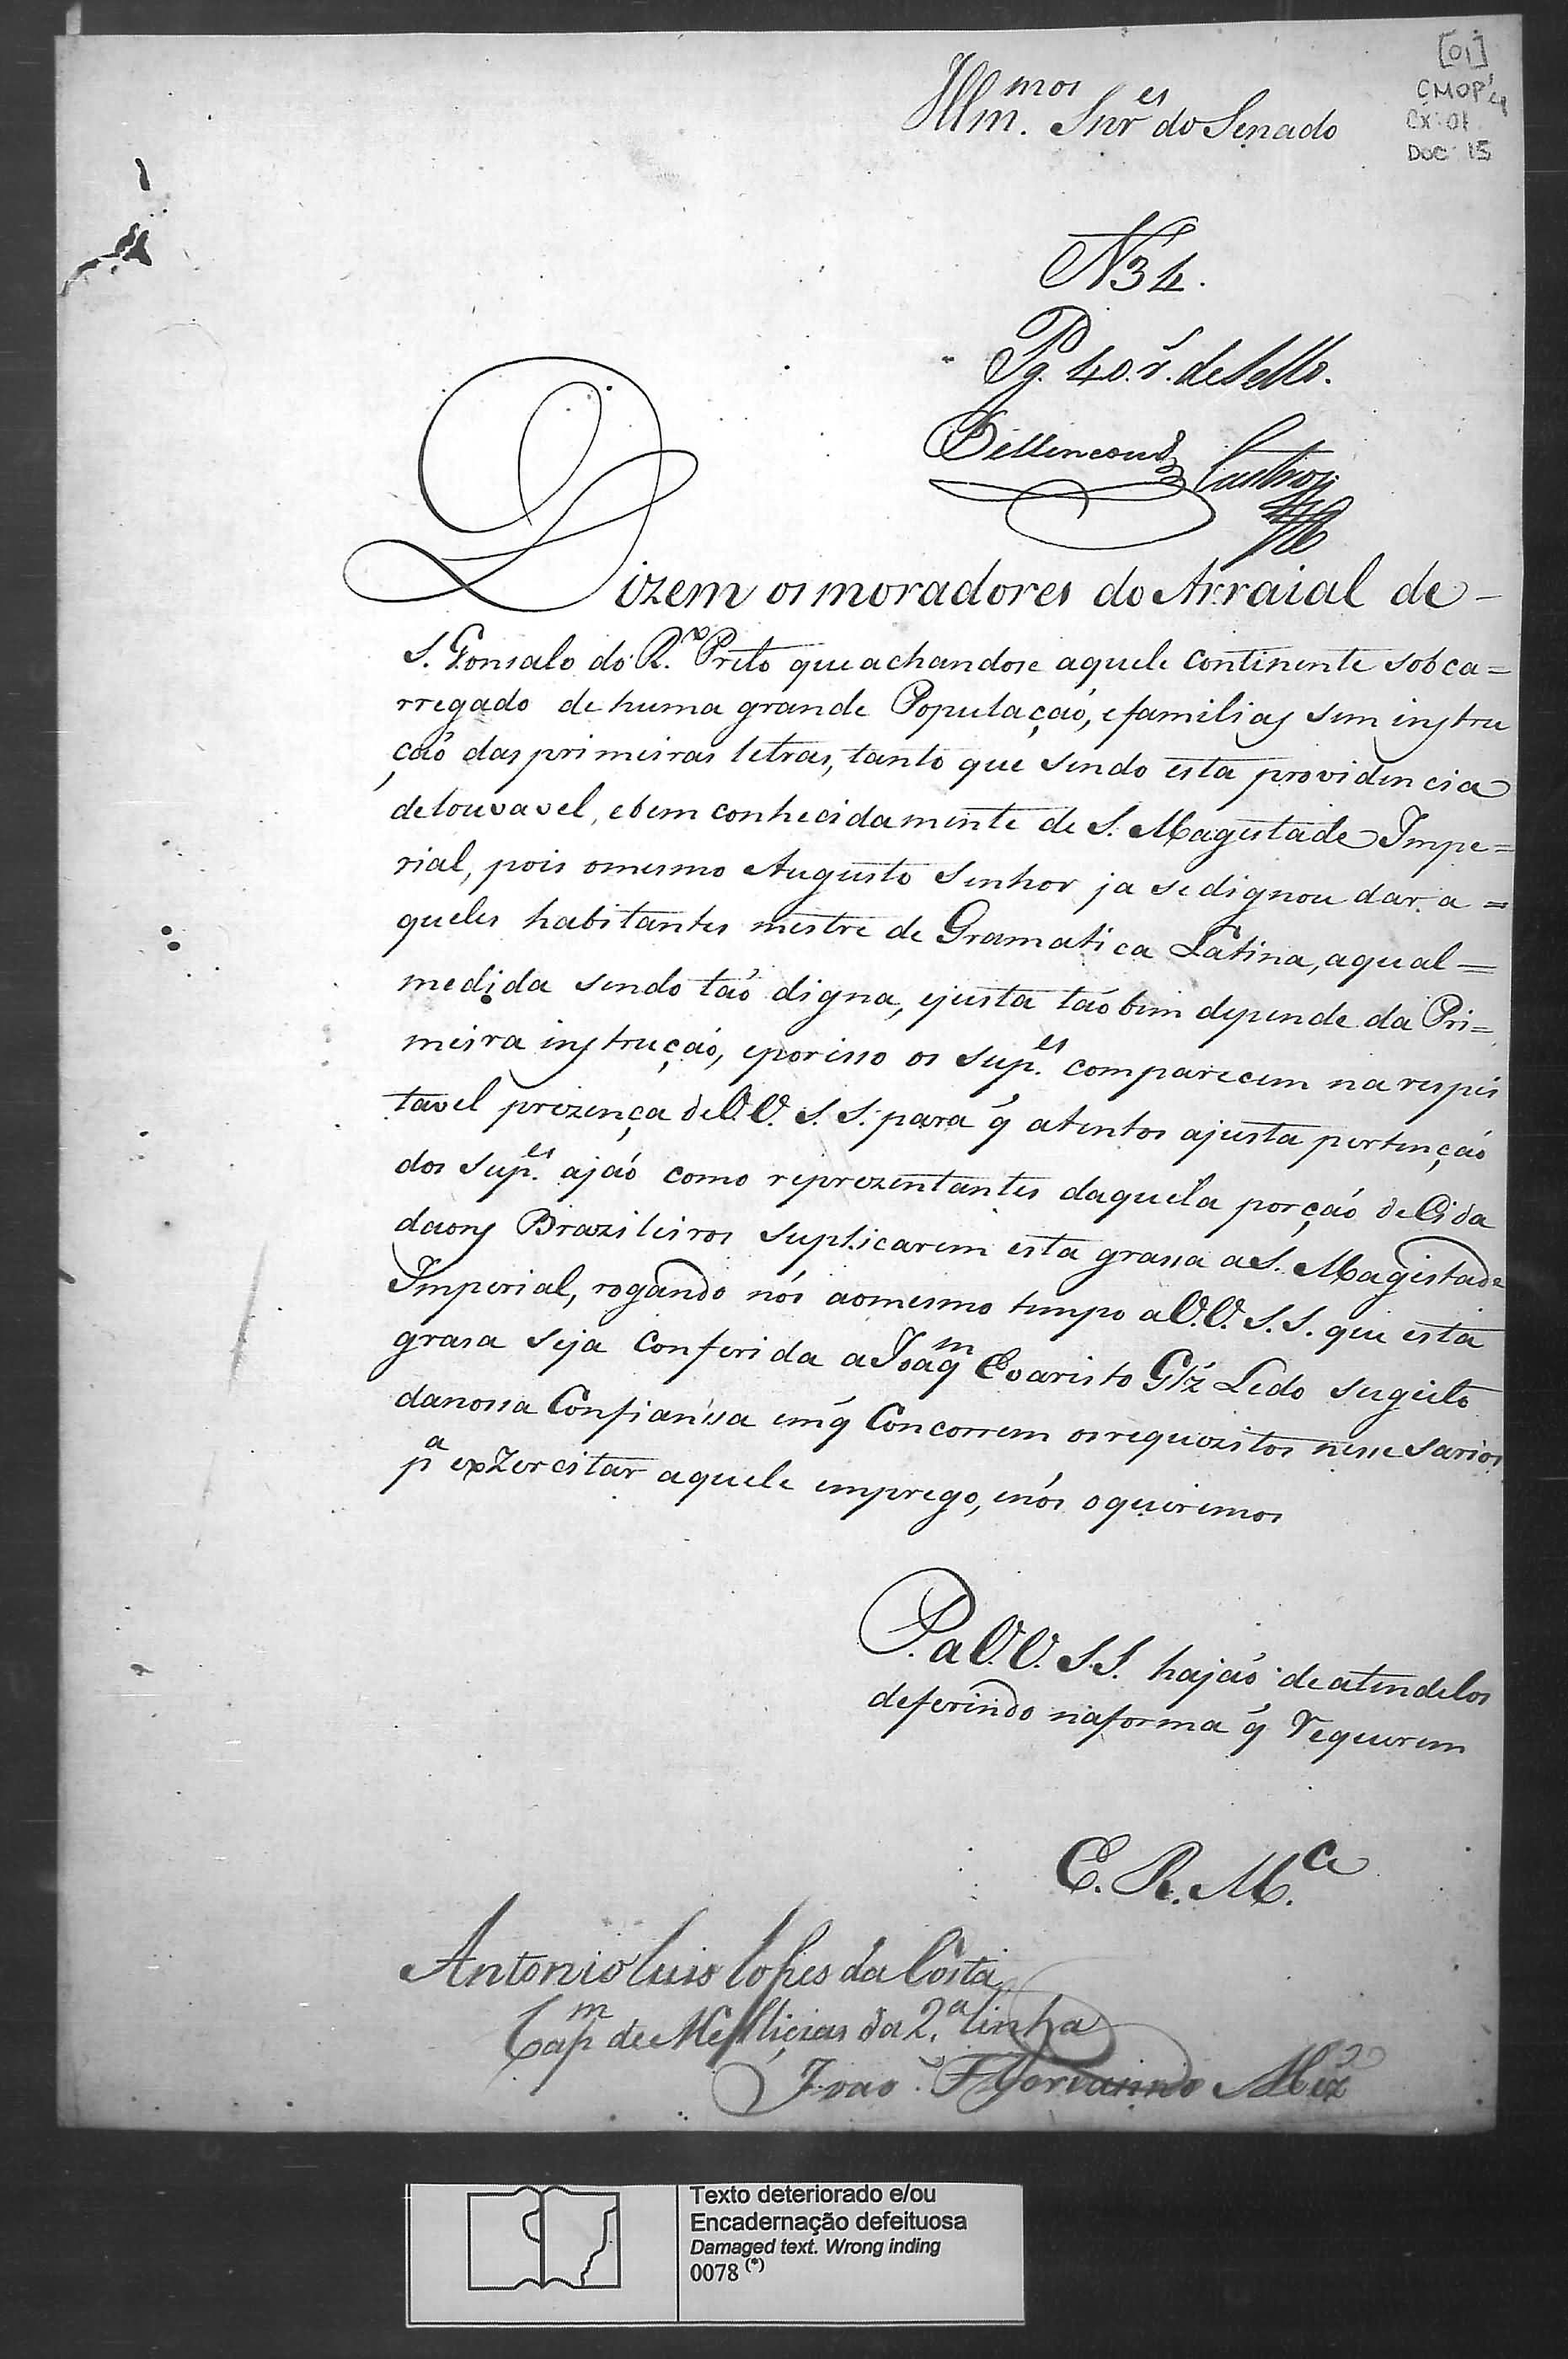 [01]
CMOP
CX: 01
DOC: 15
Illm.mos Snr.es do Senado
N34.
Pg. 40. r.s de Sello.
Bettencourt
Dizem os moradores do Arraial de
S. Gonsalo do R.o Preto que achandose aquele continente sobca=
rregado de huma grande Populaçaó, e familias sem instru
çaó das primeiras letras, tanto que sendo esta providencia
de louvavel, e bem conhecidamente de S. Magestade Impe=
rial, pois o mesmo Augusto Senhor ja se dignou dar a=
queles habitantes mestre de Gramatica Latina, a qual=
medida sendo taó digna, e justa taó bem depende da Pri=
meira instruçaó, e por isso os Sup.es comparecem na respei
tavel prezença de V.V. S.S. para q̃ atentos a justa pertençaó
dos Sup.es ajaó como reprezentantes daquela porçaó de Cida
daons Brazileiros suplicarem esta grassa a S. Magestade
Imperial, rogando nós ao mesmo tempo a V.V. S.S. que esta
grasa seja conferida a Joaq.m Evaristo Glz̃ Ledo sugeito
da nossa Confianssa em q̃ Concorrem os requizitos nessesarios
p.a exZercitar aquele emprego, e nós o queremos
P. a V.V. S.S. hajaó de atendelos
deferindo na forma q̃ requerem
E. R. M.ce
Antonio Luis Lopes da Costa
Cap.m de Mellicias da 2.a linha
Joao Florianno
Texto deteriorado e/ou
Encadernação defeituosa
Damaged text. Wrong inding
0078 (*)